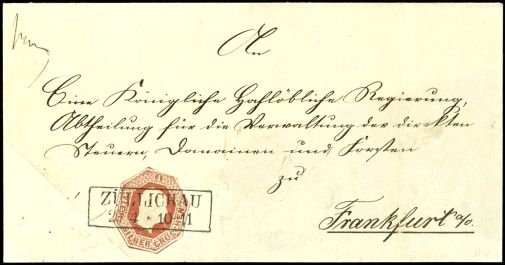 An
Eine Königliche Hochlöbliche Regierung,
Abtheilung für die Verwaltung der direkten
Steuern, Domainen und Forsten
zu
Frankfurt a/o.
ZÜLLICHAU
2 4 * 10-11
SILBER GROSCHEN